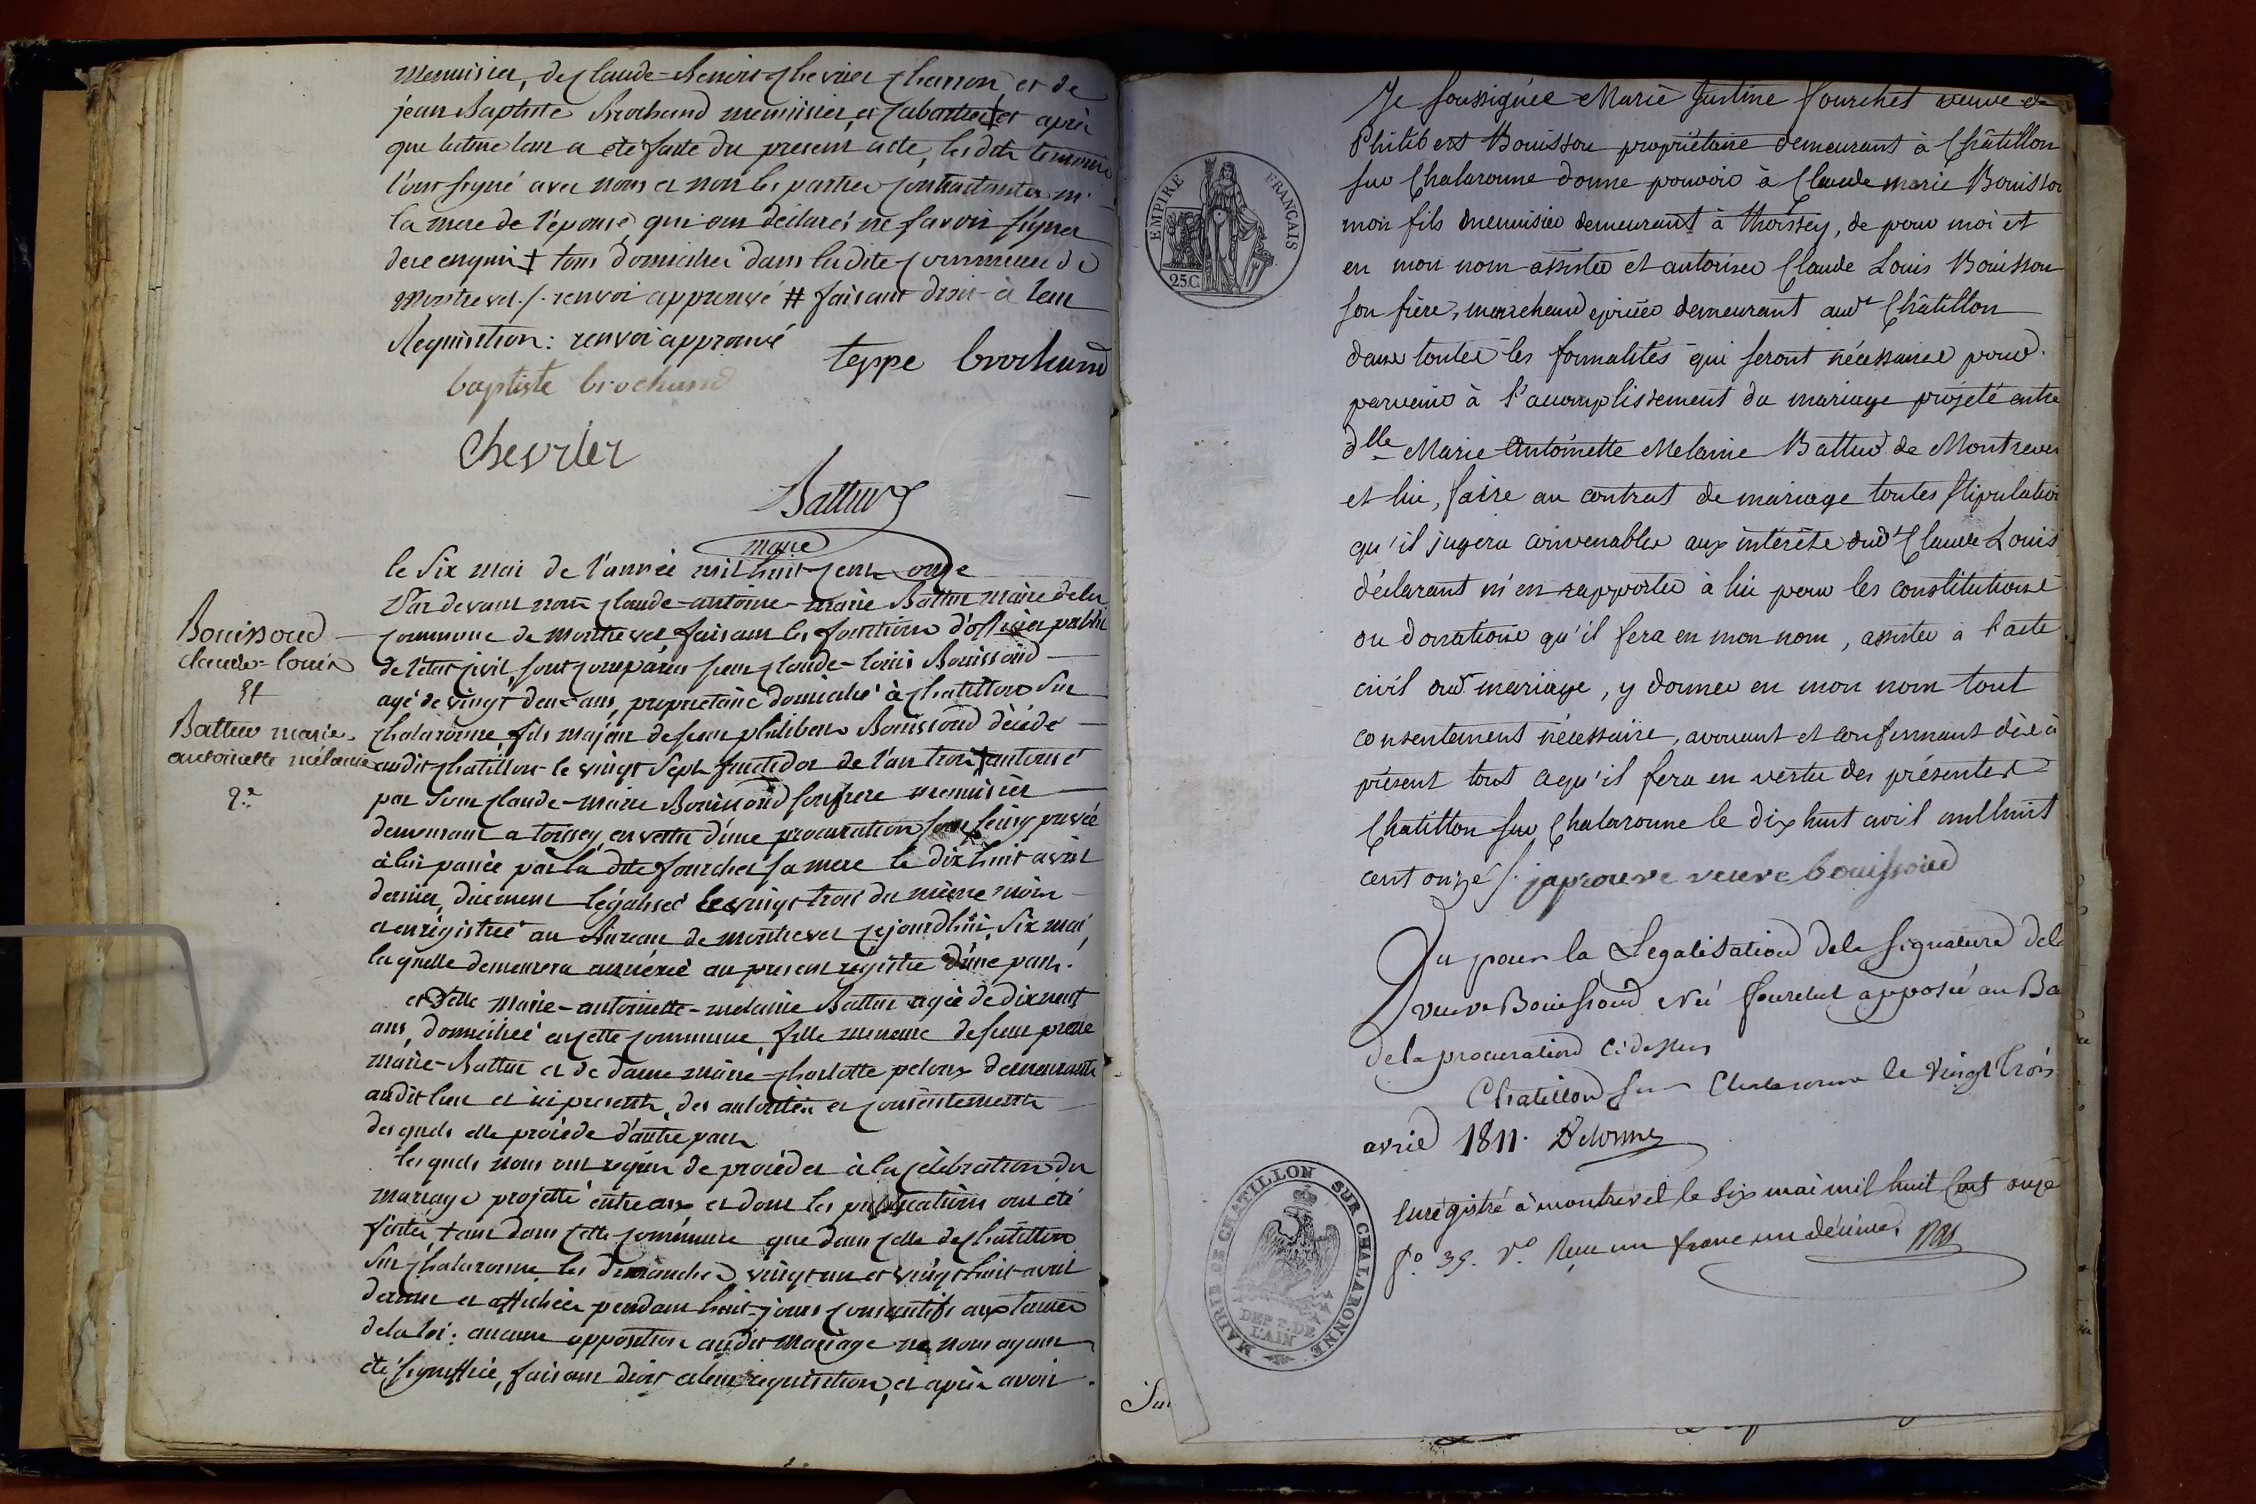 menuisier, de Claude-Benoit Chevrier Charron, et de
jean Baptiste Brochand menuisier et Cabaretier et après
que lecture leur a été faite du présent acte, lesdits témoins
l'ont signé avec nous et non les parties contractantes ni
la mere de l'épouse qui ont déclaré ne savoir signer
de ce enquis ‡ tous domiciliés dans ladite commune de
Montrevel ./. renvoi approuvé # faisant droit à leur
Requisition : renvoi approuvé
teppe brochand
baptiste brochand
Chevrier
Battur
maire
le Six mai de l'année mil huit cent onze
Par devant nous Claude-antoine-marie Battur maire de la
Commune de Montrevel faisant les fonctions d'officier public
de l'état Civil, sont comparus sieur Claude-louis Bouissoud
agé de vingt deux ans, proprietaire domicilié à Chatillon Sur
Chalaronne, fils majeur de feu sieur philibert Bouissoud décédé
audit Chatillon le vingt Sept fructidor de l'an trois ‡ autorisé
par Sieur Claude-marie Bouissoud son frere menuisier
demeurant a toissey, en vertu d'une procuration sous seing privée
à lui passée par la dite fourchet sa mere le dix huit avril
dernier, duement légalisée le vingt trois du même mois
et enrégistrée au Bureau de montrevel cejourd'hui Six mai,
laquelle demeurera annéxée au present registre d'une part.
et Delle marie-antoinette-melanie Battur agée de dix neuf
ans, domiciliée en cette Commune, fille mineure de feu sieur pierre
marie-Battur et de dame marie-Charlotte peloux demeurante
audit lieu et ici presente, des autorités et consentements
desquels elle procéde d'autre part
lesquels nous ont requis de procéder à la Célébration du
mariage projetté entre eux et dont les publications ont été
faites, tant dans Cette Commune que dans Celle de Chatillon
Sur Chalaronne les dimanches vingt un et vingt huit avril
dernier et affichées pendant huit jours consécutifs aux termes
de la loi : aucune opposition audit mariage ne nous ayant
été signiffiée, faisant droit à leur requisition, et après avoir
Bouissoud
claude=louis
Et
Battur marie
antoinette mélanie
9.e
Je soussignée Marie Justine fourchet veuve de
Philibert Bouissou propriétaire demeurant à Châtillon
sur Chalaronne donne pouvoir à Claude marie Bouissou
mon fils menuisier demeurant à thoissey, de pour moi et
en mon nom assister et autoriser Claude Louis Bouissou
son frère, marchand épicier demeurant audt Châtillon
dans toutes les formalités qui seront nécessaires pour
parvenir à l'accomplissement du mariage projeté entre
dlle Marie Antoinette Melanie Battur de Montrevel
et lui, faire au contrat de mariage toutes stipulations
qu'il jugera convenables aux intérêts dudt Claude Louis
déclarant m'en rapporter à lui pour les constitutions
ou donations qu'il fera en mon nom, assister à l'acte
civil dud. mariage, y donner en mon nom tout
consentement nécessaire, avouant et confirmant dès à
présent tout ce qu'il fera en vertu des présentes
Chatillon sur Chalaronne le dix huit avril mil huit
cent onze ./. japrouve veuve bouissoud
Vu pour la Legalisation de la Signature de la
veuve Bouissoud née fourchet apposée au Ba
de la procuration ci dessus
Chatillon sur Chalaronne le vingt trois
avril 1811. Delorme
Enrégistré à montrevel le Six mai mil huit cent onze
f.o 39. V.o Reçu un franc un décime.
EMPIRE FRANÇAIS
25.C.
MAIRIE DE CHATILLON SUR CHALARONNE
DEP.T DE
L'AIN
Sur